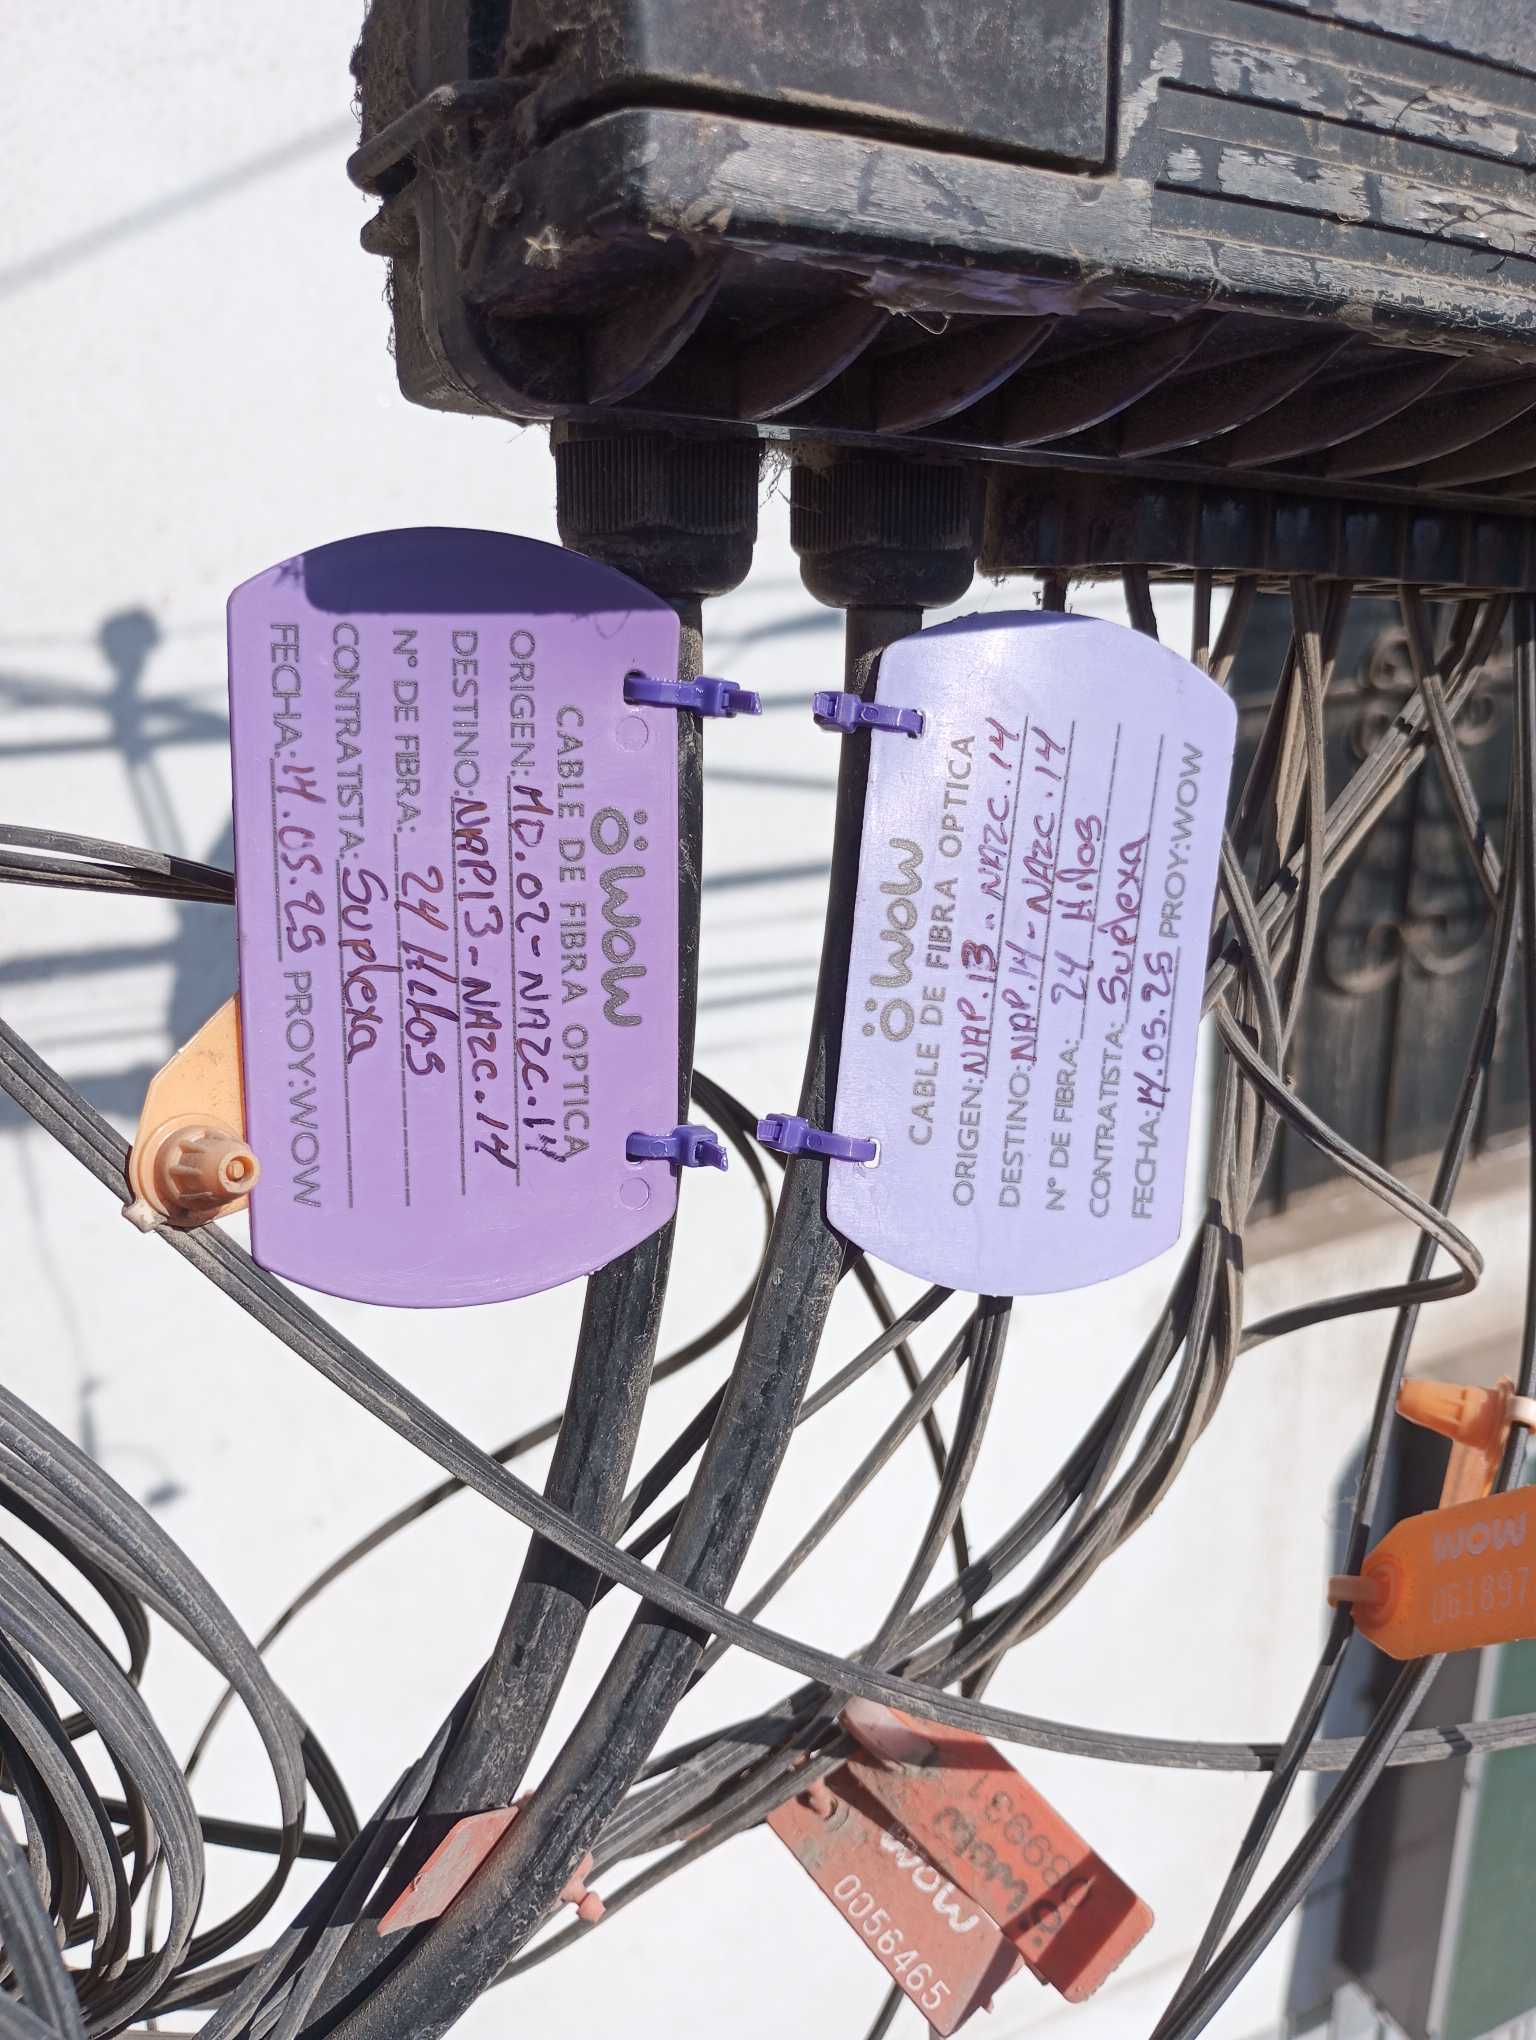 öwow
CABLE DE FIBRA OPTICA
ORIGEN: MD.02-NAZC.14
DESTINO: NAP.13-NAZC.14
N° DE FIBRA: 24 Hilos
CONTRATISTA: Suplexa
FECHA: 14.05.25 PROY:WOW
öwow
CABLE DE FIBRA OPTICA
ORIGEN: NAP.13-NAZC.14
DESTINO: NAP.14-NAZC.14
N° DE FIBRA: 24 Hilos
CONTRATISTA: Suplexa
FECHA: 14.05.25 PROY:WOW
WOW
061897
öwow
089931
WOW
0056465